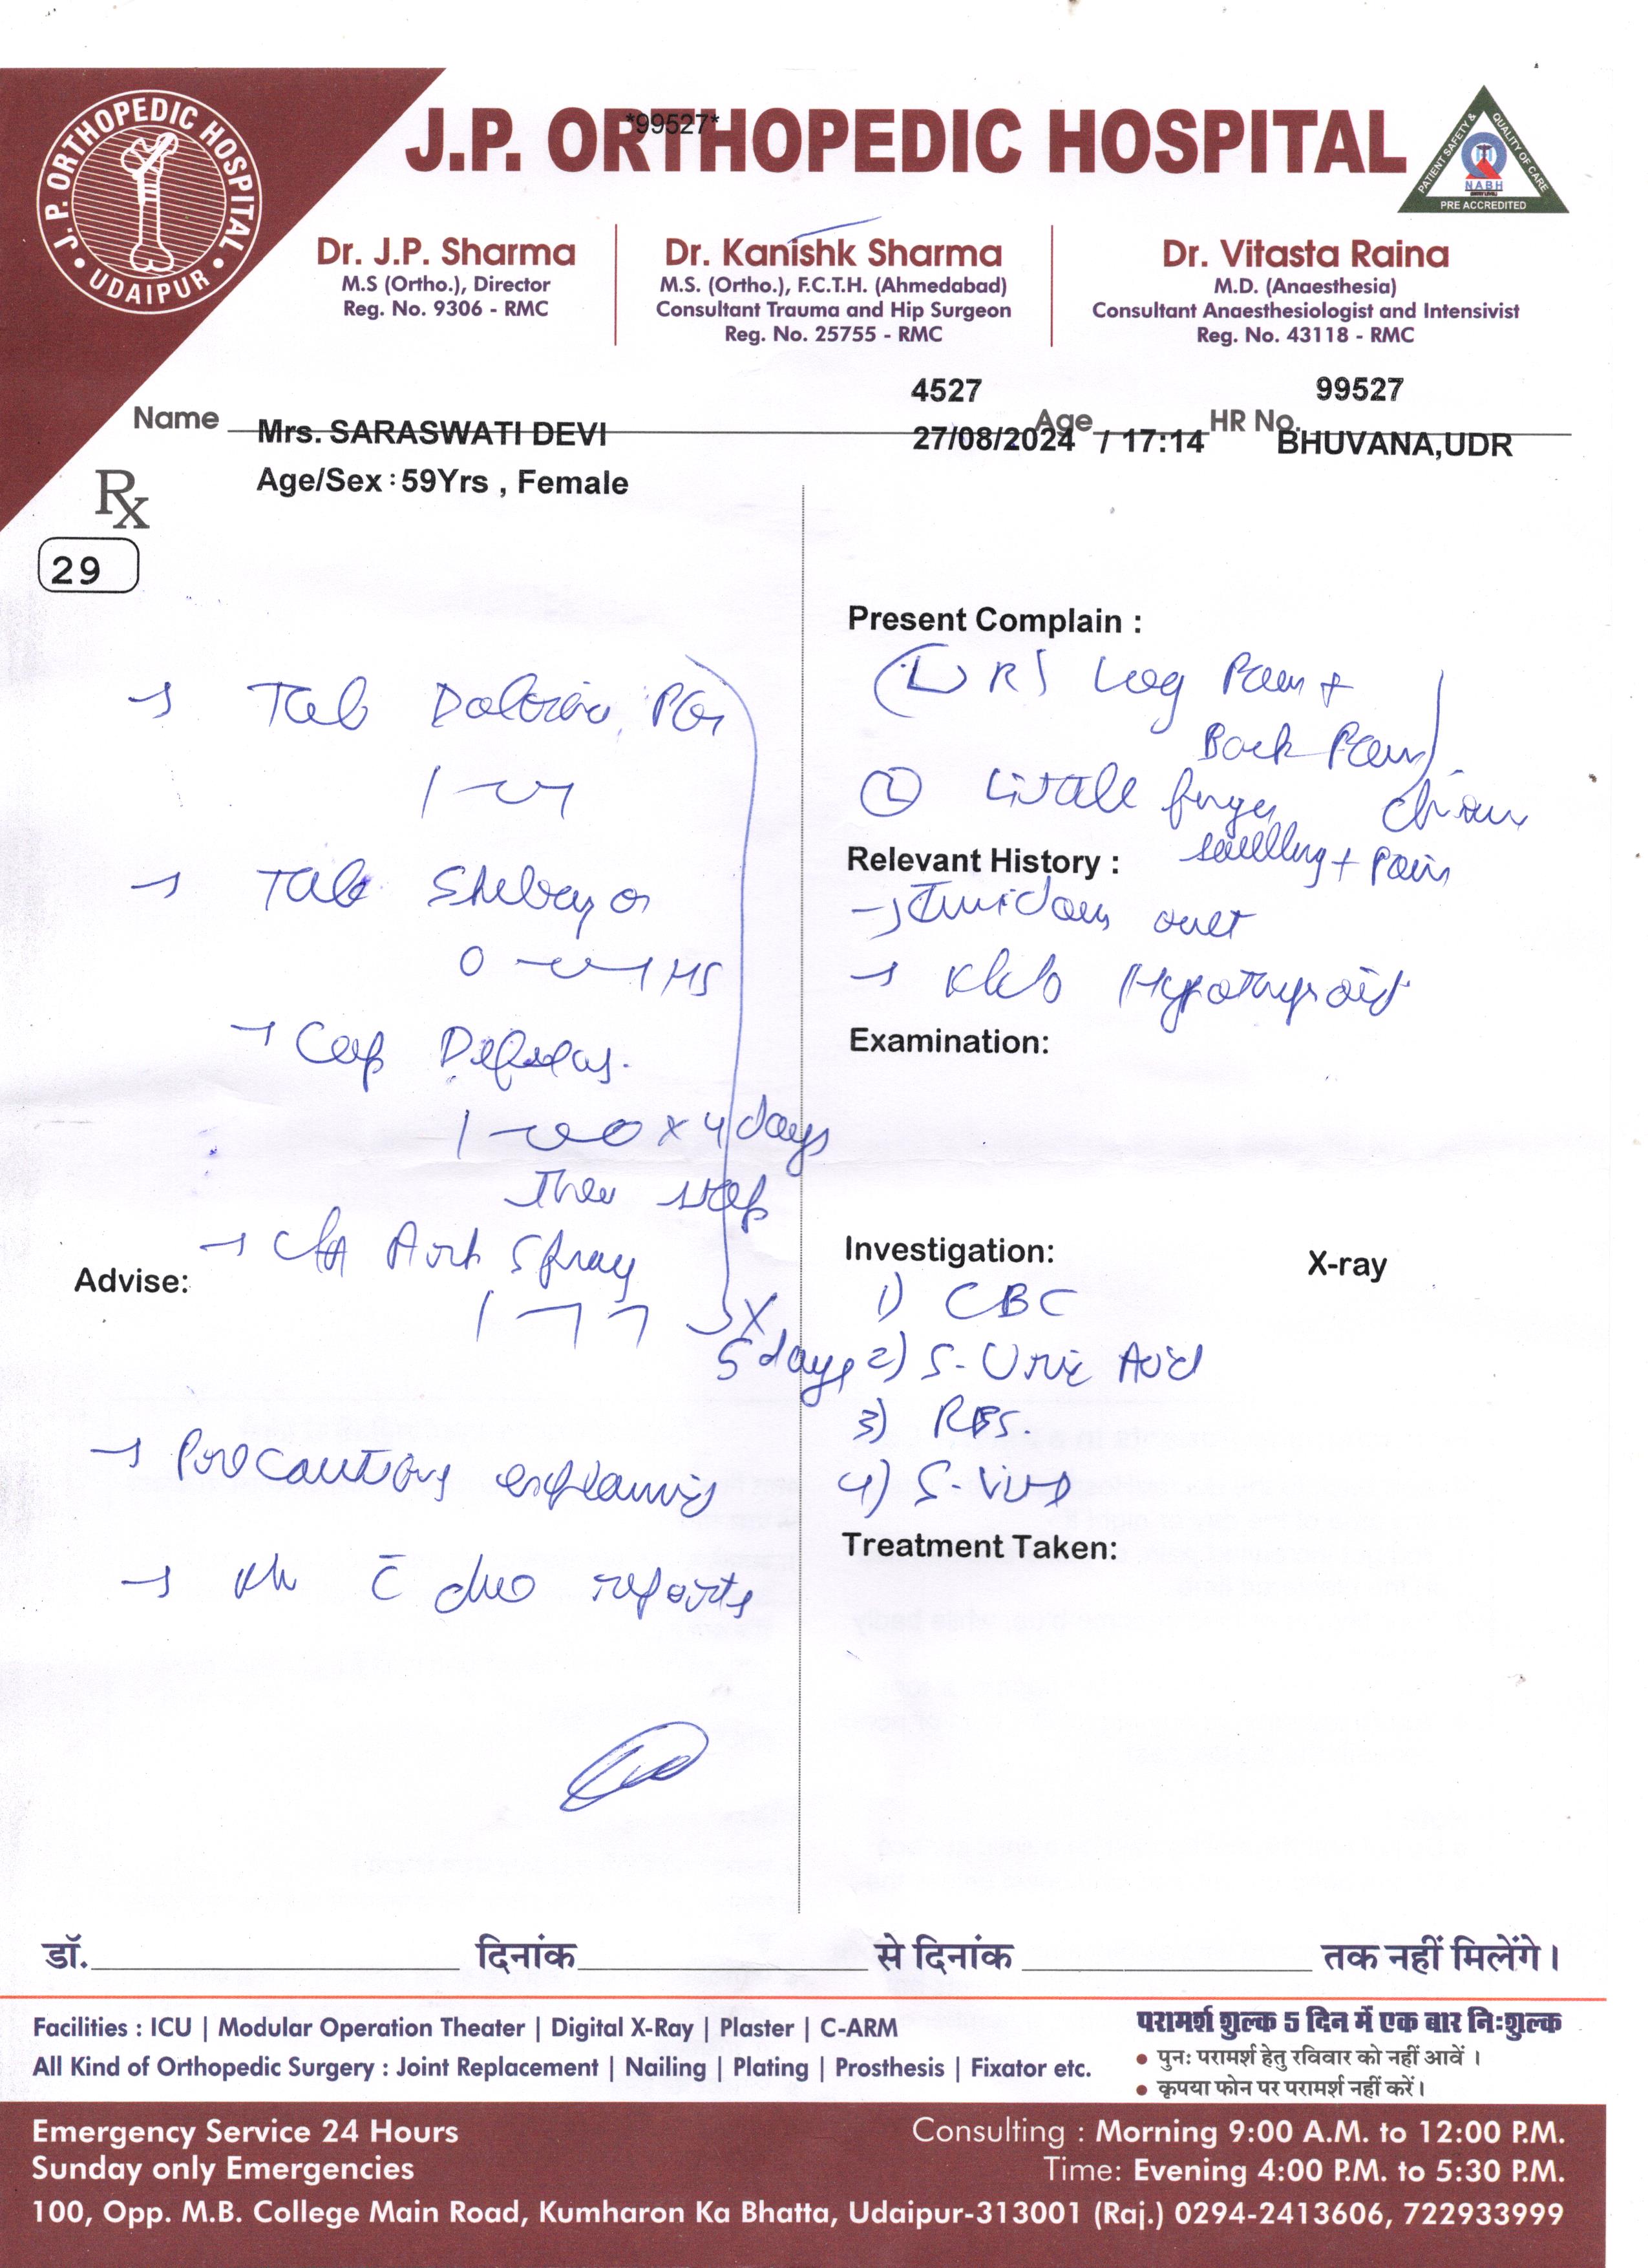 J.P. ORTHOPEDIC HOSPITAL
UDAIPUR
J.P. ORTHOPEDIC HOSPITAL
*99527*
PATIENT SAFETY & QUALITY OF CARE
NABH
PRE ACCREDITED
Dr. J.P. Sharma
M.S (Ortho.), Director
Reg. No. 9306 - RMC
Dr. Kanishk Sharma
M.S. (Ortho.), F.C.T.H. (Ahmedabad)
Consultant Trauma and Hip Surgeon
Reg. No. 25755 - RMC
Dr. Vitasta Raina
M.D. (Anaesthesia)
Consultant Anaesthesiologist and Intensivist
Reg. No. 43118 - RMC
4527 99527
Name Mrs. SARASWATI DEVI Age HR No.
27/08/2024 / 17:14 BHUVANA,UDR
Age/Sex : 59Yrs , Female
Rx
29
Tab
1 1
Tab
0 1 HS
Cap
1 0 x 4 days
Then stop
Spray
Advise:
1 1 1 x
5 days
→ Precautions explained
→ c̄ reports
Present Complain :
Leg Pain +
Back Pain
Little finger
swelling + Pain
Relevant History :
→ onset
→ Hypothyroid
Examination:
Investigation: X-ray
1) CBC
2) S. Uric Acid
3) RBS.
4) S.
Treatment Taken:
डॉ. दिनांक से दिनांक तक नहीं मिलेंगे।
Facilities : ICU | Modular Operation Theater | Digital X-Ray | Plaster | C-ARM
All Kind of Orthopedic Surgery : Joint Replacement | Nailing | Plating | Prosthesis | Fixator etc.
परामर्श शुल्क 5 दिन में एक बार निःशुल्क
• पुनः परामर्श हेतु रविवार को नहीं आवें ।
• कृपया फोन पर परामर्श नहीं करें।
Emergency Service 24 Hours
Sunday only Emergencies
Consulting : Morning 9:00 A.M. to 12:00 P.M.
Time: Evening 4:00 P.M. to 5:30 P.M.
100, Opp. M.B. College Main Road, Kumharon Ka Bhatta, Udaipur-313001 (Raj.) 0294-2413606, 722933999